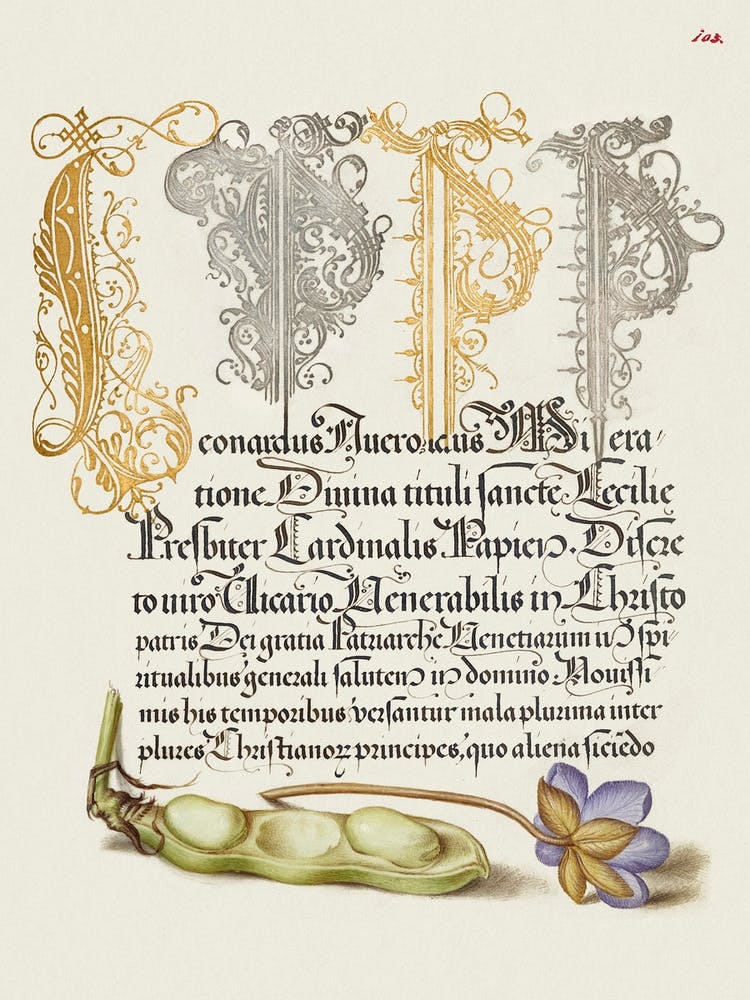 103.
L P P P
eonardus Nueronicus Misera-
tione Divina tituli sancte Cecilie
Presbiter Cardinalis Papien. Discre
to viro Vicario Venerabilis in Christo
patris Dei gratia Patriarche Venetiarum in spi-
ritualibus generali salutem in domino. Novissi-
mis his temporibus versantur mala plurima inter
plures Christianorꝝ principes, quo aliena siciẽdo